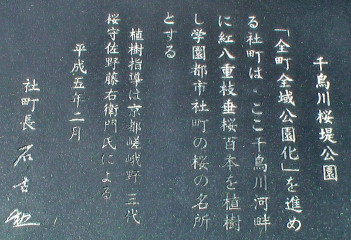 千鳥川桜堤公園
「全町全域公園化」を進め
る社町は、ここ千鳥川河畔
に紅八重枝垂桜百本を植樹
し学園都市社町の桜の名所
とする
植樹指導は京都嵯峨野三代
桜守佐野藤右衛門氏による
平成五年二月
社町長 石古